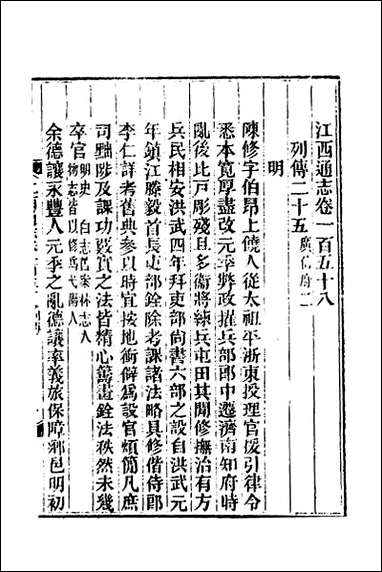 江西通志卷一百五十八
列傳二十五 廣信府二
明
陳修字伯昂上饒人從太祖平浙東授理官援引律令
悉本寬厚盡改元季弊政擢兵部郎中遷濟南知府時
亂後比戶彫殘且多衞將練兵屯田其閒修撫治有方
兵民相安洪武四年拜吏部尙書六部之設自洪武元
年鎮江滕毅首長吏部銓除考課諸法略具修偕侍郎
李仁詳考舊典參以時宜按地衝僻爲設官煩簡凡庶
司黜陟及課功覈實之法皆精心籌畫銓法秩然未幾
卒官 明史 白志 謹案林志人物志皆以修爲弋陽人
余德讓永豐人元季之亂德讓率義旅保障鄉邑明初